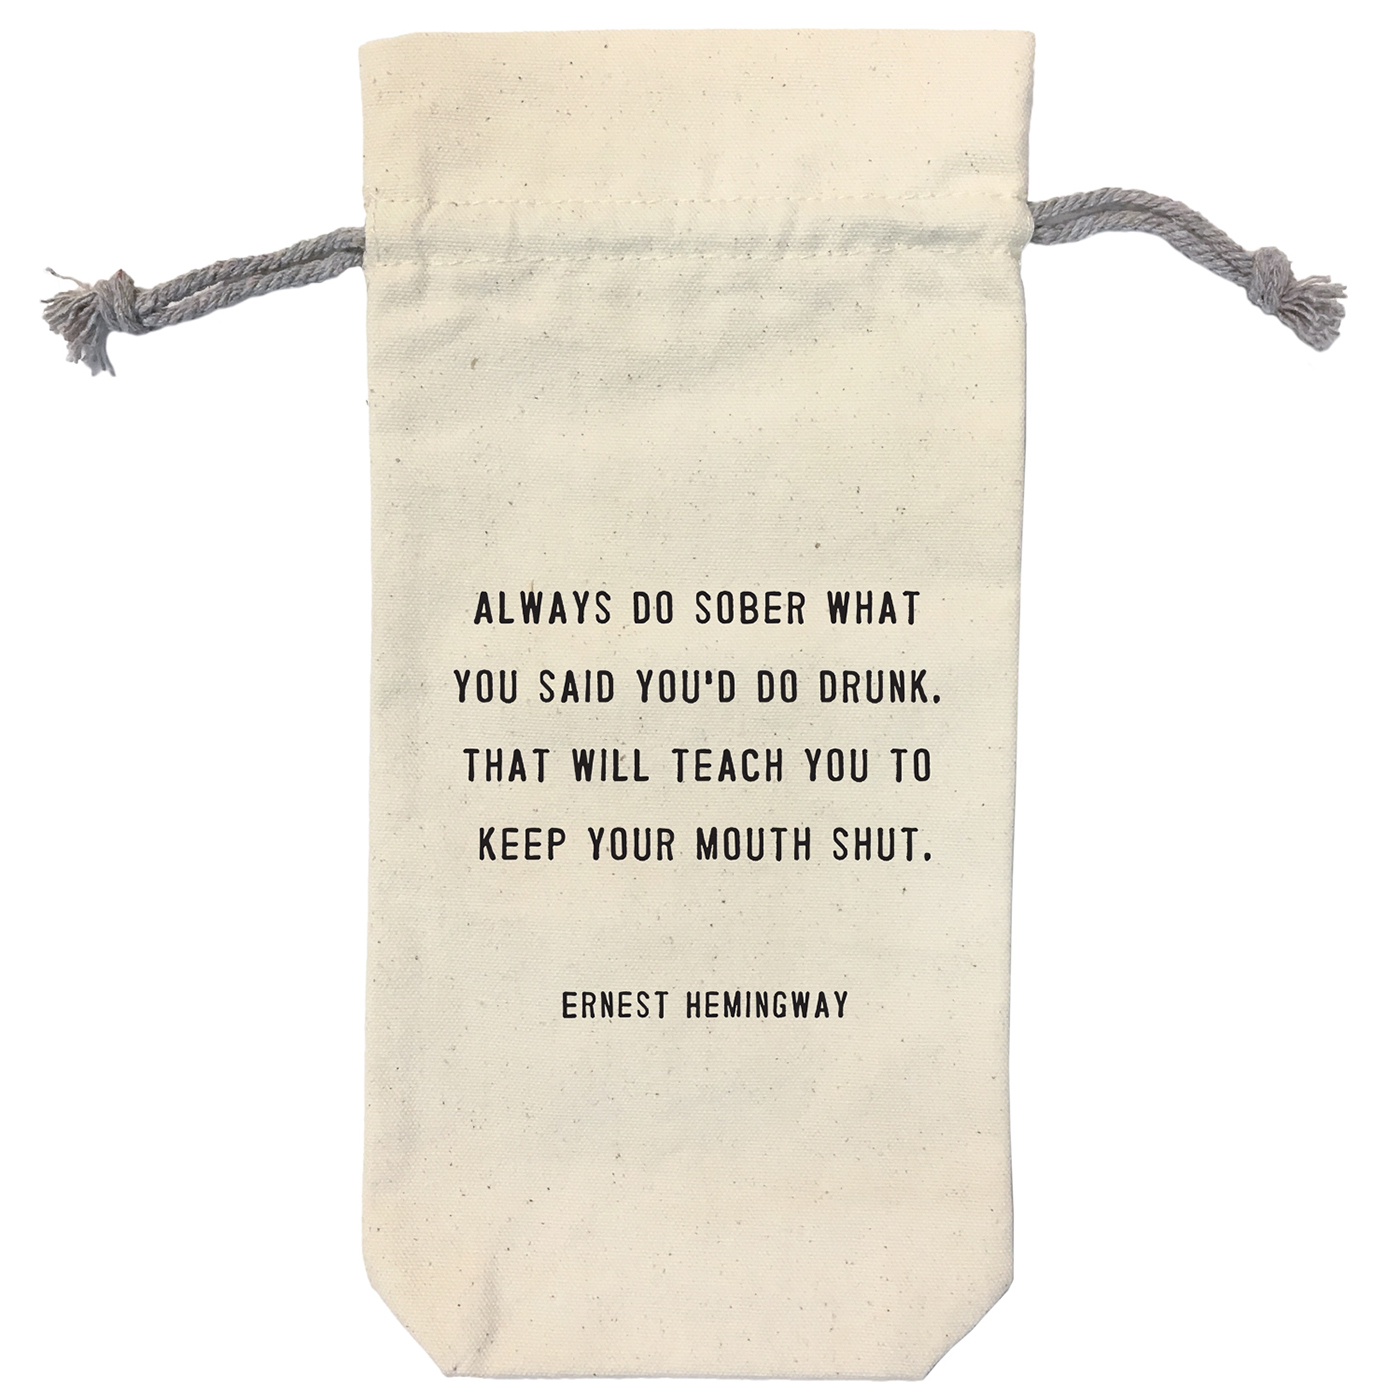 ALWAYS DO SOBER WHAT
YOU SAID YOU'D DO DRUNK.
THAT WILL TEACH YOU TO
KEEP YOUR MOUTH SHUT.
ERNEST HEMINGWAY